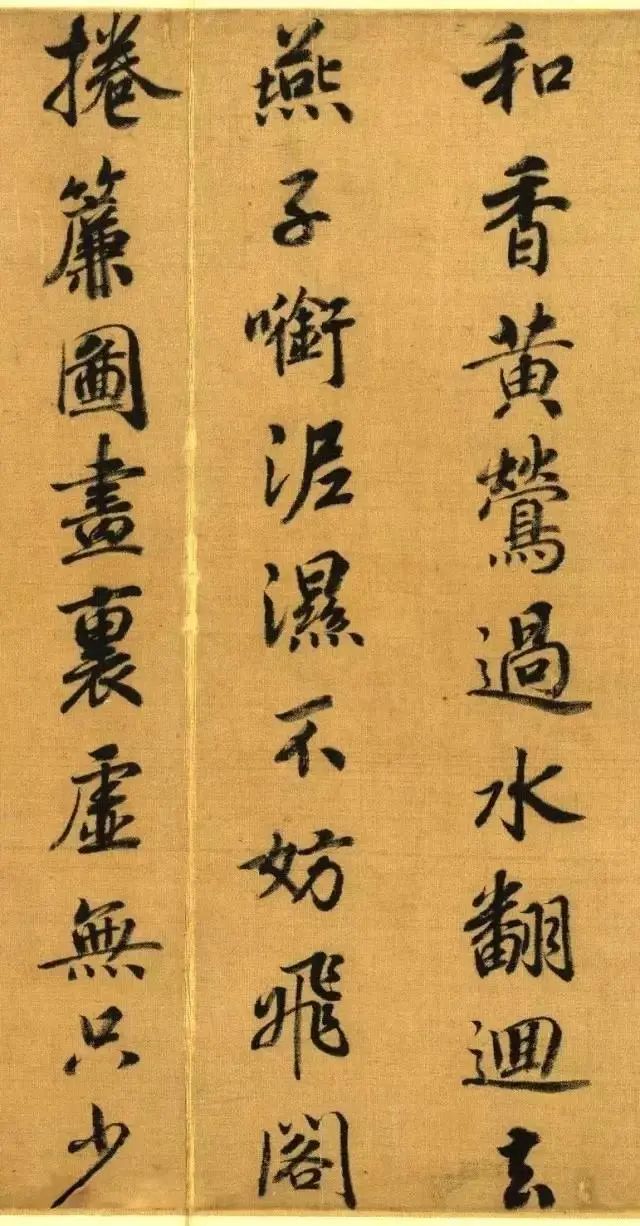 和香黄鶯過水翻迴去
燕子㘅泥濕不妨飛閣
捲簾圖畫裏虛無只少